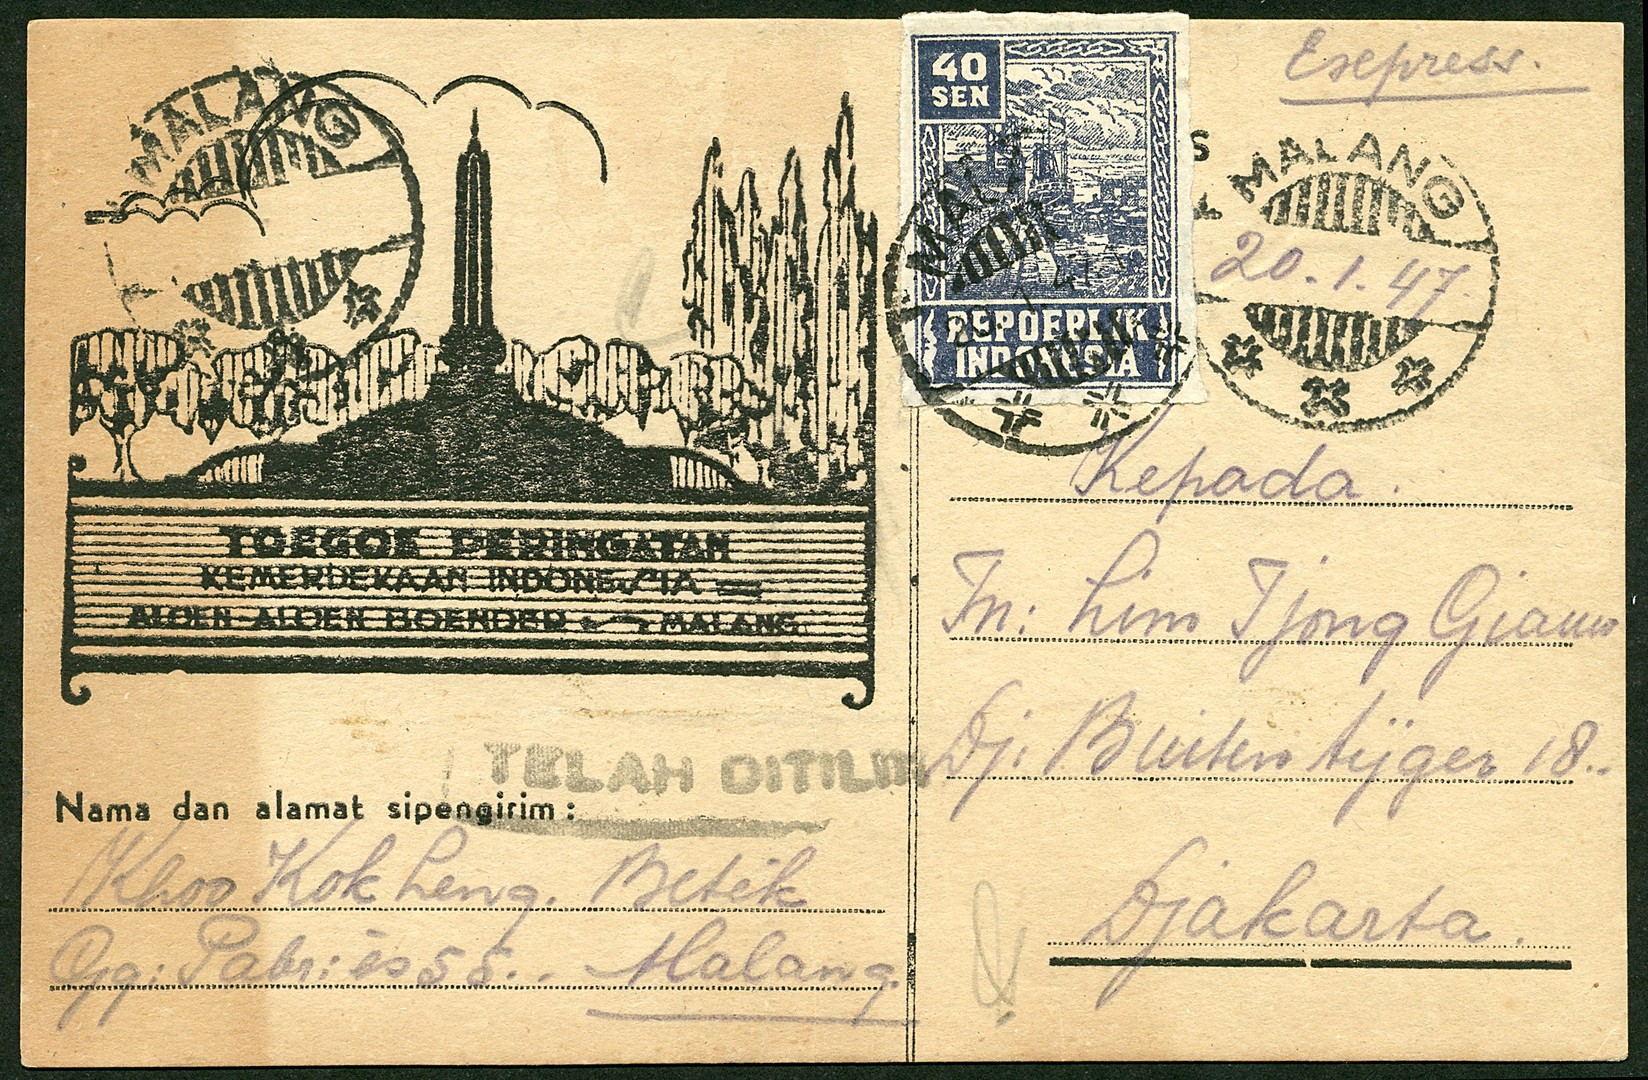 MALANG
40
SEN
REPOEBLIK
INDONESIA
Exepress.
S
MALANG
20.1.47.
TOEGOE PERINGATAN
KEMERDEKAAN INDONESIA
ALOEN ALOEN BOENDER MALANG
TELAH DITILIK
Nama dan alamat sipengirim:
Khoo Kok Leng. Betek
Gg: Pabr: ès 55.. Malang.
Kepada.
Tn: Lim Tjong Giauw
Dj: Buiten tijger 18..
Djakarta.